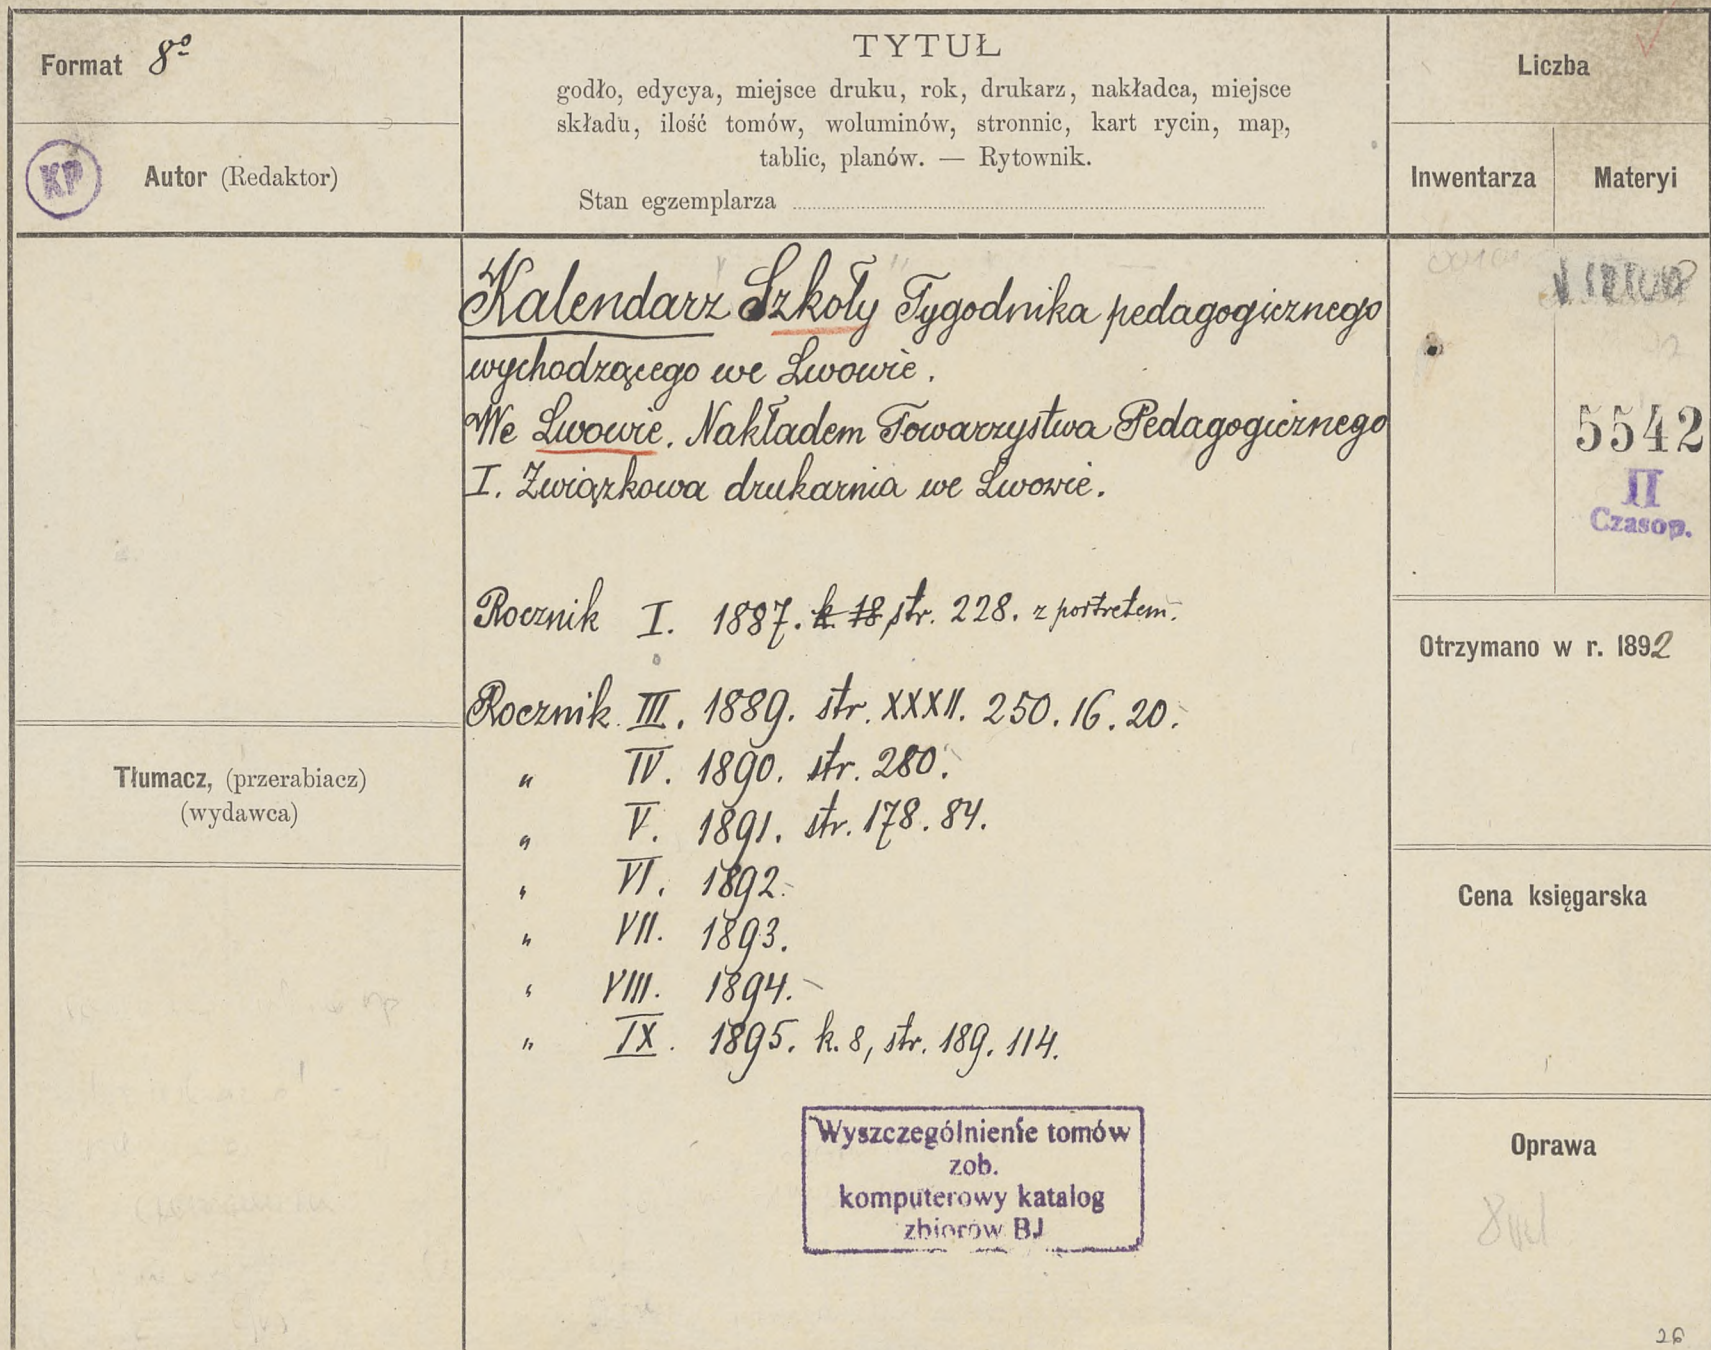 Format 8º
KP
Autor (Redaktor)
TYTUŁ
godło, edycya, miejsce druku, rok, drukarz, nakładca, miejsce
składu, ilość tomów, woluminów, stronnic, kart rycin, map,
tablic, planów. — Rytownik.
Stan egzemplarza
Liczba
Inwentarza
Materyi
Kalendarz "Szkoły" Tygodnika pedagogicznego
wychodzącego we Lwowie.
We Lwowie. Nakładem Towarzystwa Pedagogicznego
I. Związkowa drukarnia we Lwowie.
Rocznik I. 1887. k. 18, str. 228. z portretem.
Rocznik III. 1889. str. XXXII. 250. 16. 20.
" IV. 1890. str. 280.
" V. 1891. str. 178. 84.
" VI. 1892.
" VII. 1893.
" VIII. 1894.
" IX. 1895. k. 8, str. 189. 114.
Wyszczególnienie tomów
zob.
komputerowy katalog
zbiorów BJ
Tłumacz, (przerabiacz)
(wydawca)
5542
II
Czasop.
Otrzymano w r. 1892
Cena księgarska
Oprawa
26